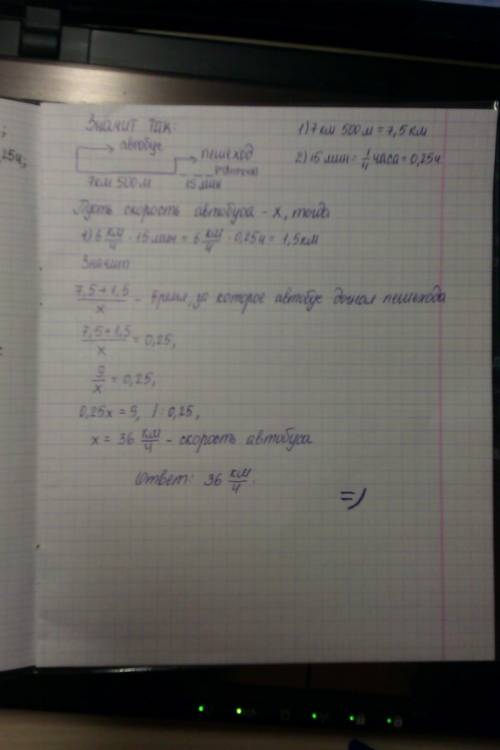 ;
25ч,
Значит так:
1) 7 км 500 м = 7,5 км
автобус
пешеход
2) 15 мин = 1/4 часа = 0,25ч
7 км 500 м 15 мин
Пусть скорость автобуса - x, тогда
6 км/ч · 15 мин = 6 км/ч · 0,25ч = 1,5 км
Значит
(7,5+1,5)/x - время, за которое автобус догнал пешехода
(7,5+1,5)/x = 0,25,
9/x = 0,25,
0,25x = 9, /:0,25,
x = 36 км/ч - скорость автобуса
Ответ: 36 км/ч.
=)